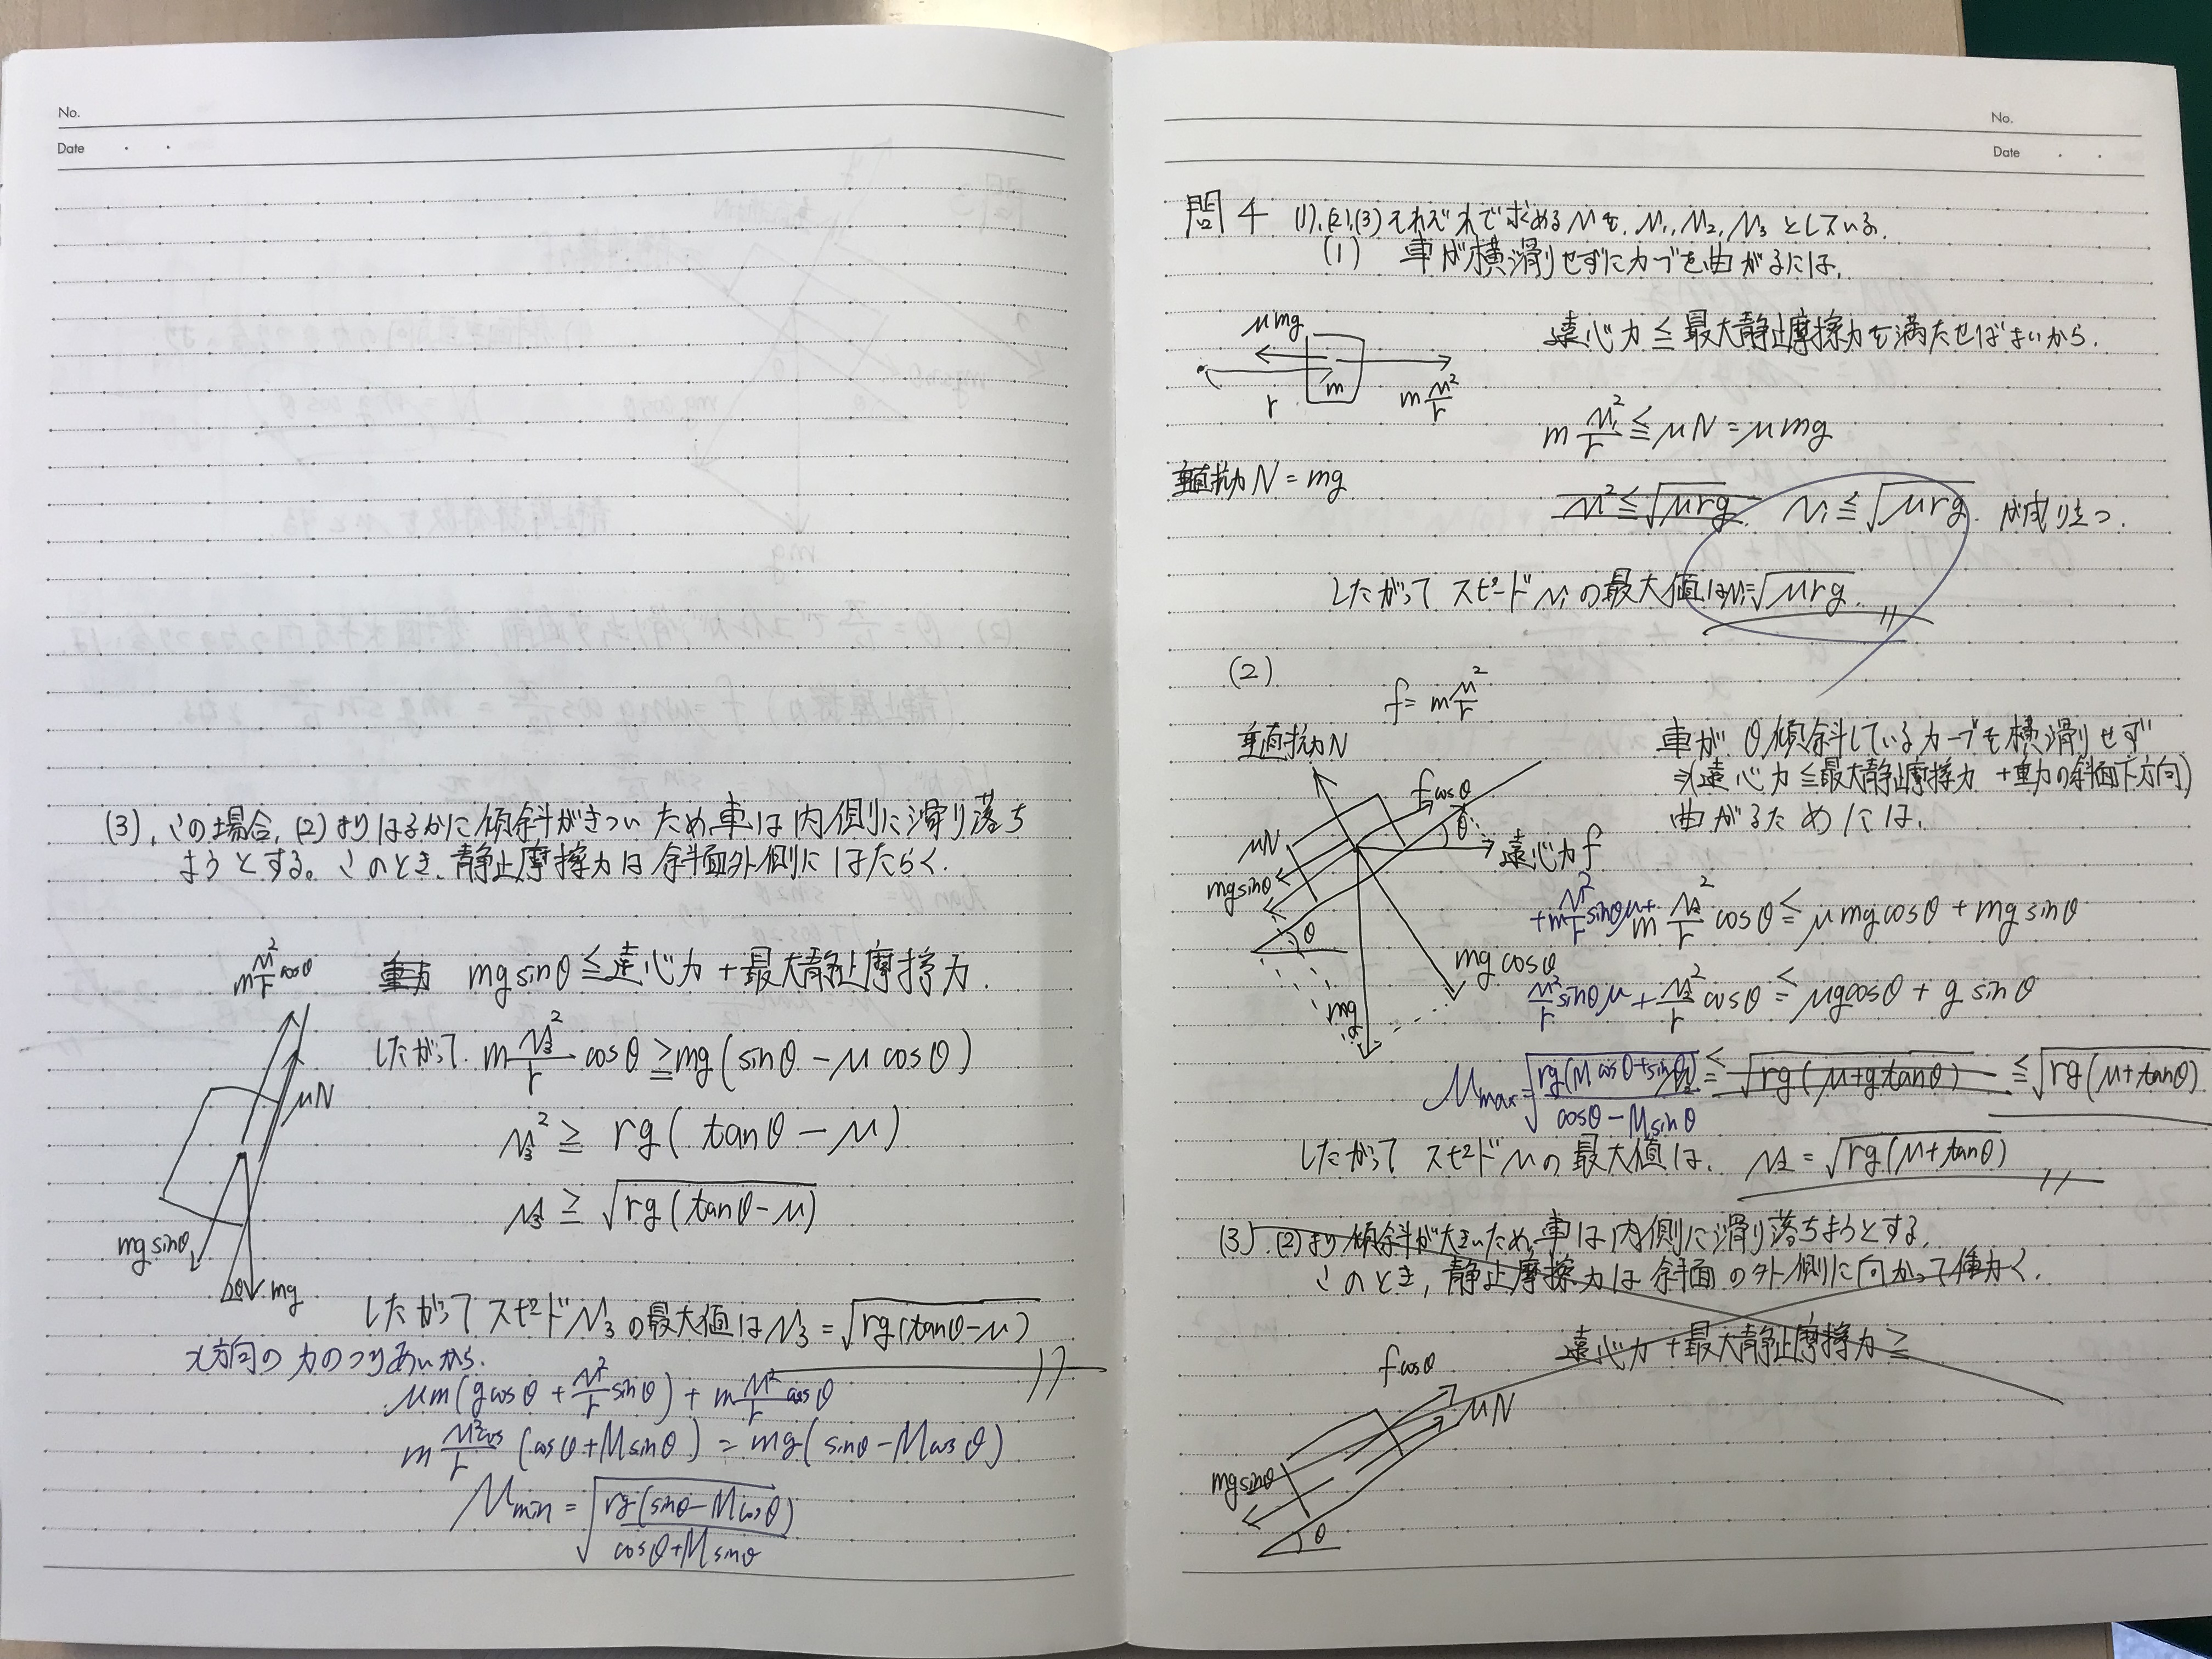 No.
Date
(3), この場合, (2)よりはるかに傾斜がきついため車は内側に滑り落ち
ようとする。このとき、静止摩擦力は斜面外側にはたらく.
m v²/r cosθ
μN
mg sinθ
θ
mg
重力 mg sinθ ≦ 遠心力 + 最大静止摩擦力.
したがって. m v₃²/r cosθ ≧ mg(sinθ - μ cosθ)
v₃² ≧ rg( tanθ - μ)
v₃ ≧ √rg(tanθ-μ)
したがって スピード v₃ の最大値は v₃ = √rg(tanθ-μ)
x方向の力のつりあいから.
μm(g cosθ + v²/r sinθ) + m v²/r cosθ
m v²cos/r (cosθ+μsinθ) = mg( sinθ-μcosθ)
v min = √rg(sinθ-μcosθ)/cosθ+μsinθ
No.
Date
問4 (1),(2),(3)それぞれで求めるvを, v₁, v₂, v₃ としている.
(1) 車が横滑りせずにカーブを曲がるには,
μmg
m
r
m v²/r
遠心力 ≦ 最大静止摩擦力を満たせばよいから.
m v₁²/r ≦ μN = μmg
垂直抗力 N = mg
v² ≦ √μrg. v₁ ≦ √μrg. が成り立つ.
したがって スピード v₁ の最大値は v₁=√μrg.
(2)
f = m v²/r
垂直抗力N
f cosθ
θ
μN
遠心力 f
mg sinθ
θ
mg cosθ
mg
車が θ傾斜しているカーブを横滑りせず
⇒(遠心力 ≦ 最大静止摩擦力 + 重力の斜面下方向)
曲がるためには,
+m v²/r sinθμ+ m v₂²/r cosθ ≦ μmg cosθ + mg sinθ
v²/r sinθμ + v₂²/r cosθ ≦ μg cosθ + g sinθ
v max = √rg(μcosθ+sinθ)/cosθ-μsinθ v₂ ≦ √rg(μ+g tanθ) ≦ √rg(μ+tanθ)
したがって スピード v の最大値は. v₂ = √rg(μ+tanθ)
(3). (2)より傾斜が大きいため, 車は内側に滑り落ちようとする.
このとき, 静止摩擦力は斜面の外側に向かって働く.
遠心力 + 最大静止摩擦力 ≧
f cosθ
μN
mg sinθ
θ